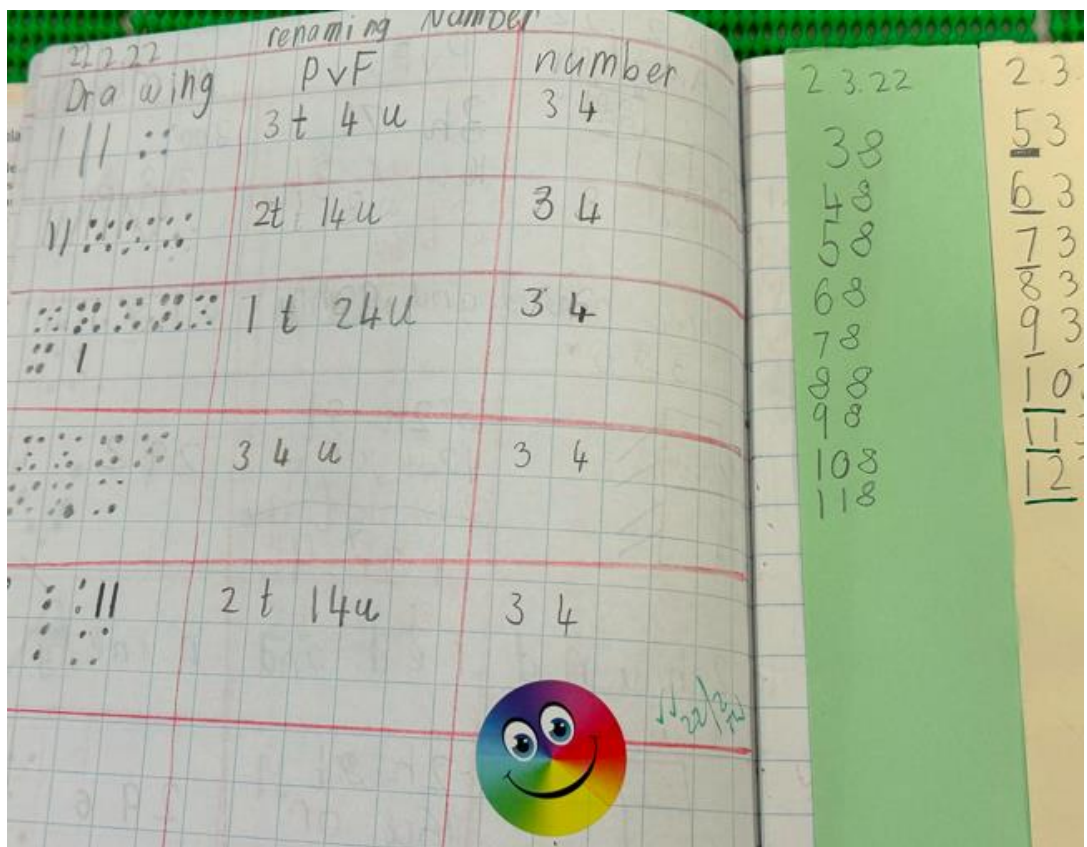 renaming Number
22.2.22
Drawing PvF number
3t 4u 34
2t 14u 34
1t 24u 34
34u 34
2t 14u 34
2.3.22
38
48
58
68
78
88
98
108
118
2.3.
53
63
73
83
93
10
11
12